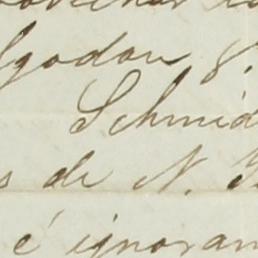 lgodão 8.
Schmid
s de N.
é ignoran